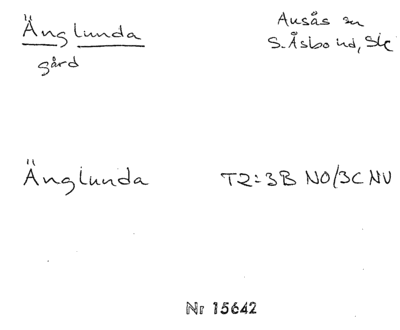 Änglunda
gård
Ausås sn
S. Åsbo hd, Sk
Änglunda
T2:3B NO/3C NV
Nr 15642